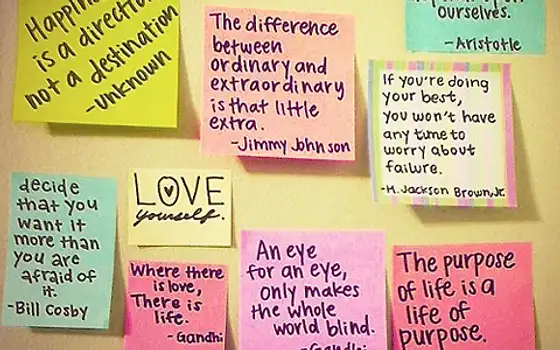 Happiness
is a direction
not a destination
-unknown
The difference
between
ordinary and
extraordinary
is that little
extra.
-Jimmy Johnson
ourselves.
-Aristotle
If you're doing
your best,
you won't have
any time to
worry about
failure.
-H. Jackson Brown, Jr.
decide
that you
want it
more than
you are
afraid of
it.
-Bill Cosby
LOVE
yourself.
Where there
is love,
There is
life.
-Gandhi
An eye
for an eye,
only makes
the whole
world blind.
-Gandhi
The purpose
of life is a
life of
purpose.